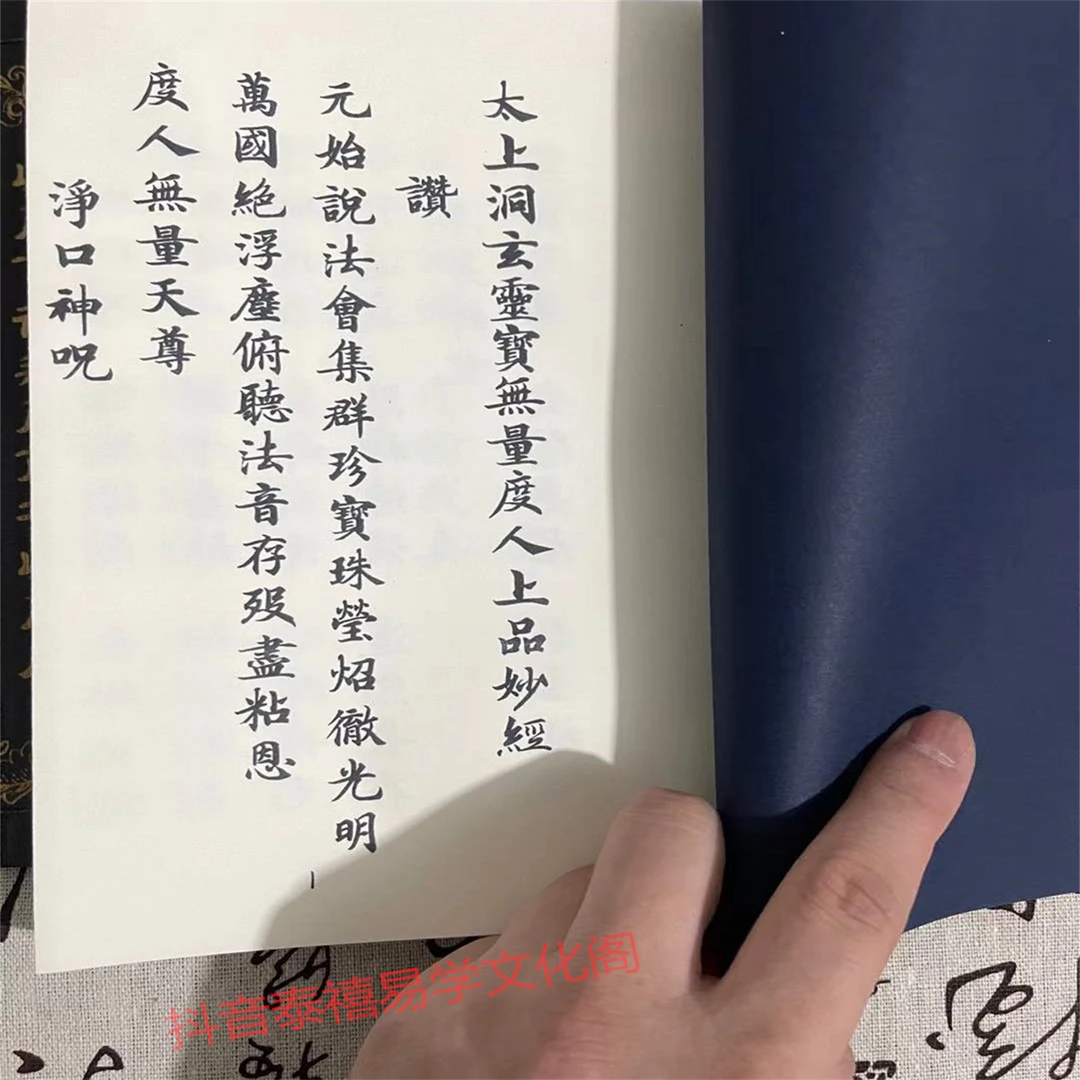 太上洞玄靈寶無量度人上品妙經
讚
元始說法會集群珍寶珠瑩炤徹光明
萬國絕浮塵俯聽法音存歿盡粘恩
度人無量天尊
淨口神呪
1
抖音泰禧易学文化阁